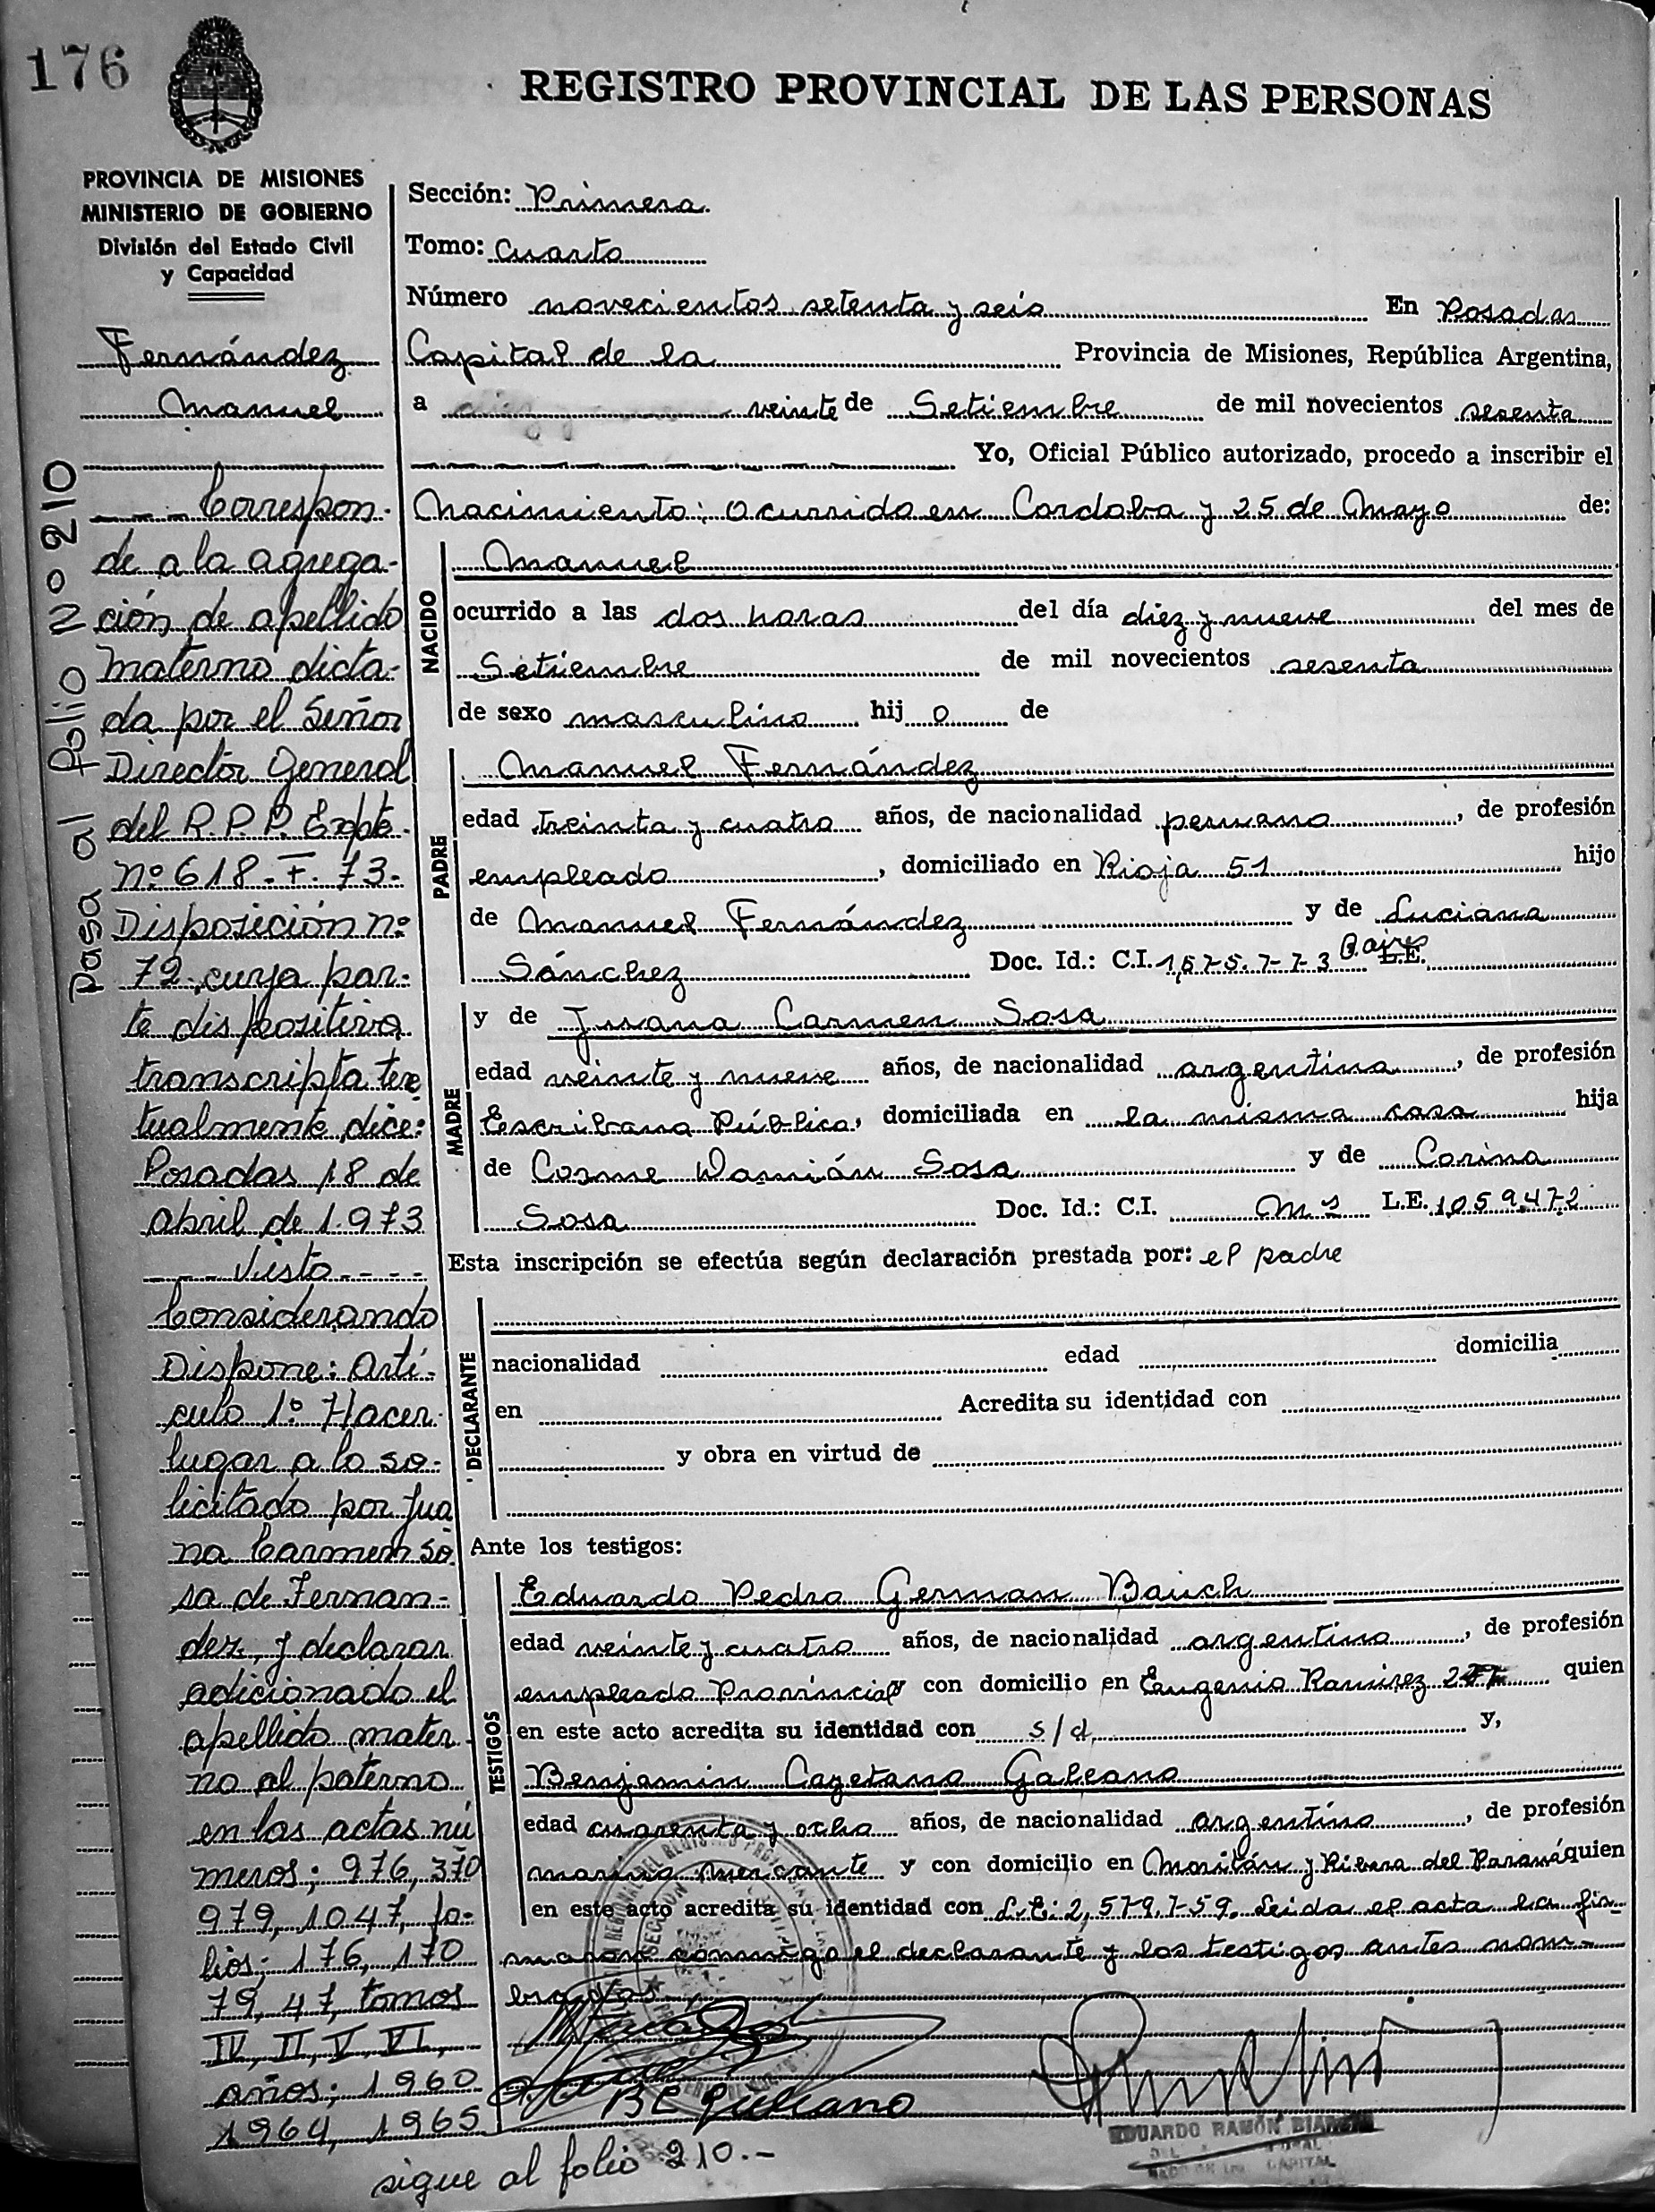 176
REGISTRO PROVINCIAL DE LAS PERSONAS
PROVINCIA DE MISIONES
MINISTERIO DE GOBIERNO
División del Estado Civil
y Capacidad
Fernández
Manuel
--- Correspon-
de a la agrega-
ción de apellido
materno dicta-
da por el Señor
Director General
del R.P.P. Expte.
nº 618-F-73-
Disposición nº
72, cuya par-
te dispositiva
transcripta tex
tualmente dice:
Posadas 18 de
abril de 1.973
--- Visto ----
Considerando
Dispone: Artí-
culo 1º Hacer
lugar a lo so-
licitado por Jua
na Carmen So
sa de Fernan-
dez, y declarar
adicionado el
apellido mater
no al paterno
en las actas nú
meros; 976, 370
979, 1047, fo-
lios; 176, 170
79, 47, tomos
IV, II, V, VI,
años; 1960
1964, 1965
Pasa al Folio Nº 210
Sección: Primera
Tomo: Cuarto
Número novecientos setenta y seis En Posadas
Capital de la Provincia de Misiones, República Argentina,
a veinte de Setiembre de mil novecientos sesenta
Yo, Oficial Público autorizado, procedo a inscribir el
Nacimiento: ocurrido en Cordoba y 25 de Mayo de:
NACIDO
Manuel
ocurrido a las dos horas del día diez y nueve del mes de
Setiembre de mil novecientos sesenta
de sexo masculino hij o de
PADRE
Manuel Fernández
edad treinta y cuatro años, de nacionalidad peruano, de profesión
empleado, domiciliado en Rioja 51 hijo
de Manuel Fernández y de Luciana
Sánchez Doc. Id.: C.I. 1,575.773 B.aires L.E.
MADRE
y de Juana Carmen Sosa
edad veinte y nueve años, de nacionalidad argentina, de profesión
Escribana Pública, domiciliada en la misma casa hija
de Cosme Damián Sosa y de Corina
Sosa Doc. Id.: C.I. L.E. 1,059.472
Esta inscripción se efectúa según declaración prestada por: el padre
DECLARANTE
nacionalidad edad domicilia
en Acredita su identidad con
y obra en virtud de
Ante los testigos:
TESTIGOS
Eduardo Pedro German Bauch
edad veinte y cuatro años, de nacionalidad argentino, de profesión
empleado Provincial con domicilio en Eugenio Ramirez quien
en este acto acredita su identidad con s/d. y,
Benjamin Cayetano Galeano
edad cuarenta y ocho años, de nacionalidad argentino, de profesión
marino mercante y con domicilio en Moritán y Ribera del Paraná quien
en este acto acredita su identidad con L.E: 2,579.759. Leida el acta la fir-
maron conmigo el declarante y los testigos antes nom-
brados
B C Galeano
EDUARDO RAMÓN
CAPITAL
sigue al folio 210.-